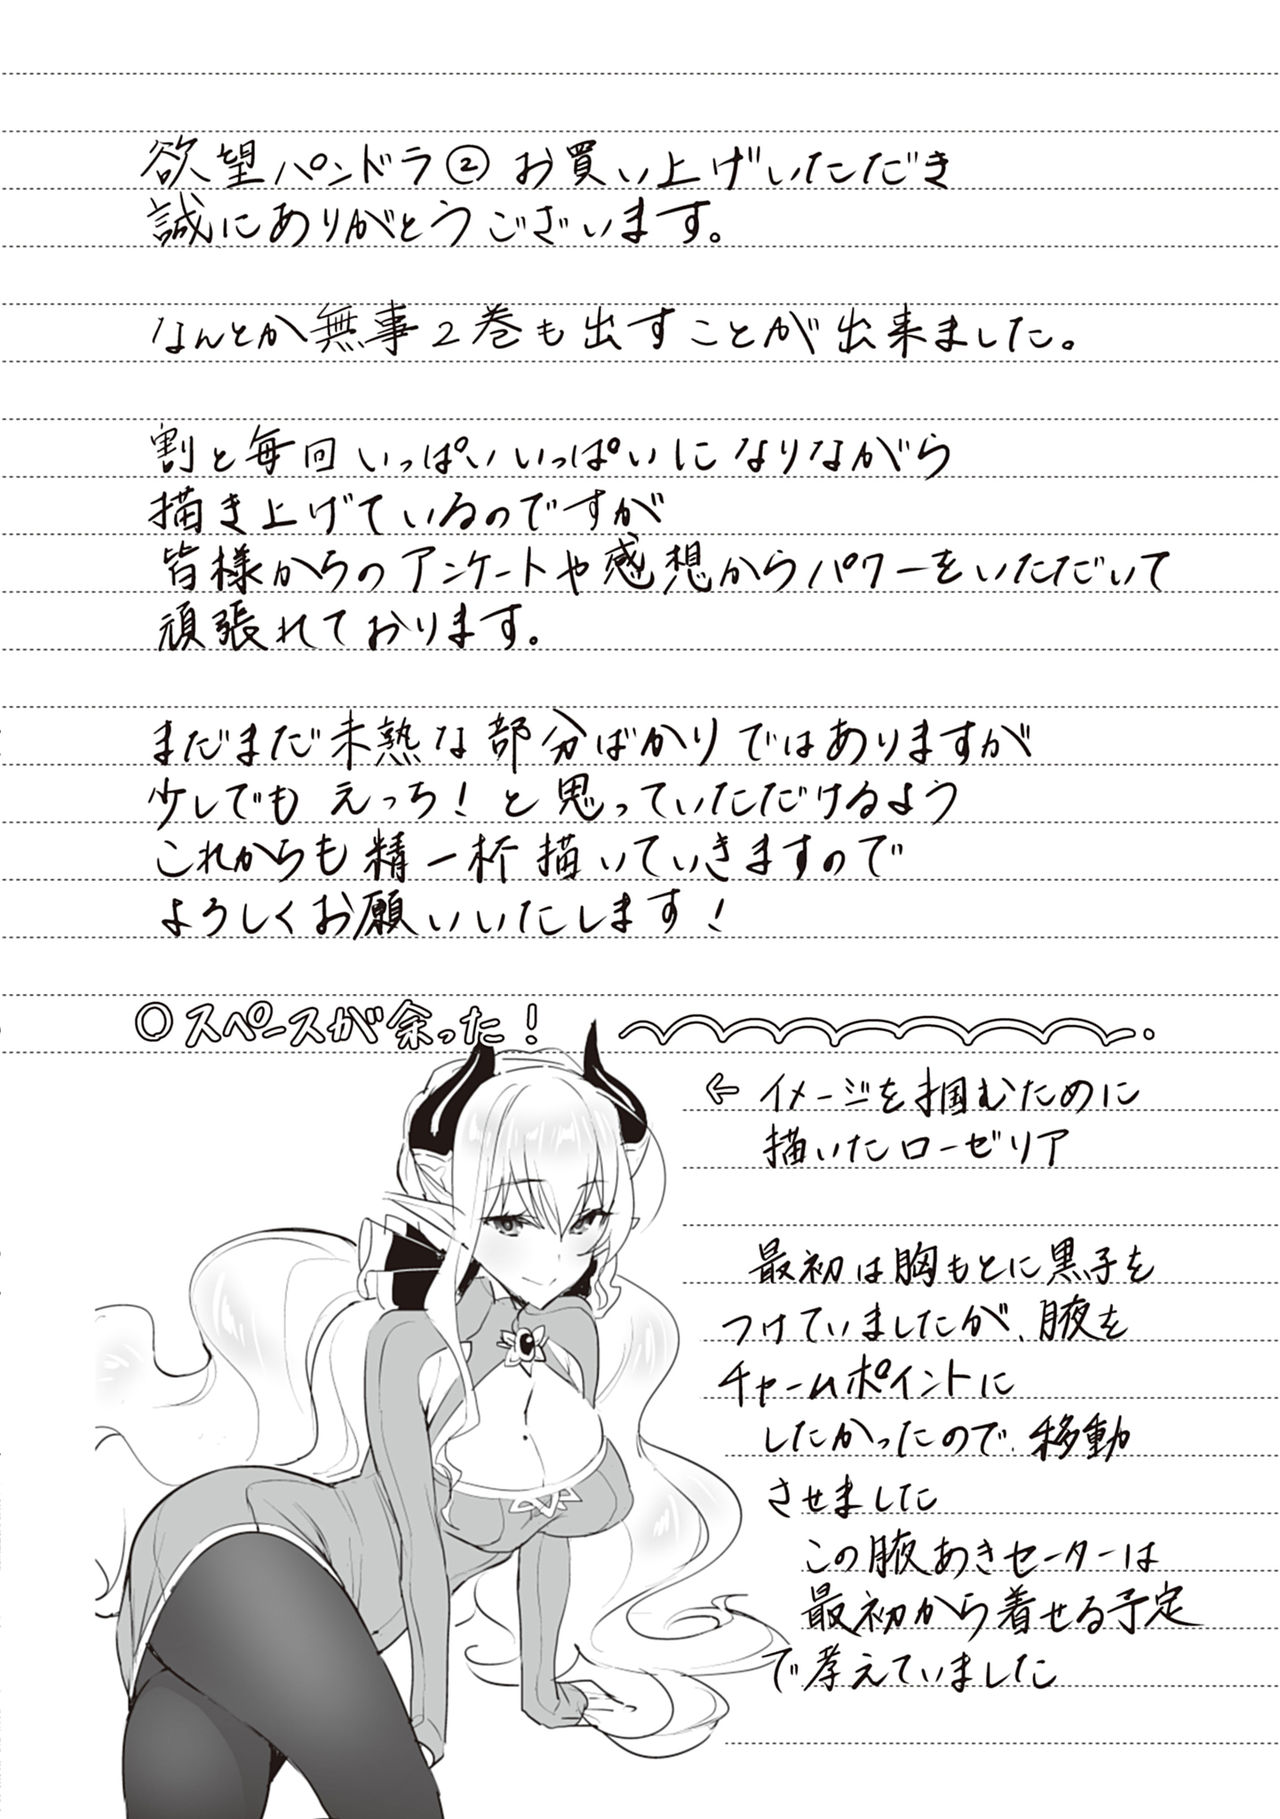 欲望パンドラ②お買い上げいただき
誠にありがとうございます。
なんとか無事2巻も出すことが出来ました。
割と毎回いっぱいいっぱいになりながら
描き上げているのですが
皆様からのアンケートや感想からパワーをいただいて
頑張れております。
まだまだ未熟な部分ばかりではありますが
少しでも えっち!と思っていただけるよう
これからも精一杯描いていきますので
よろしくお願いいたします!
○スペースが余った!
← イメージを掴むために
描いたローゼリア
最初は胸もとに黒子を
つけていましたが、腋を
チャームポイントに
したかったので、移動
させました
この腋あきセーターは
最初から着せる予定
で考えていました